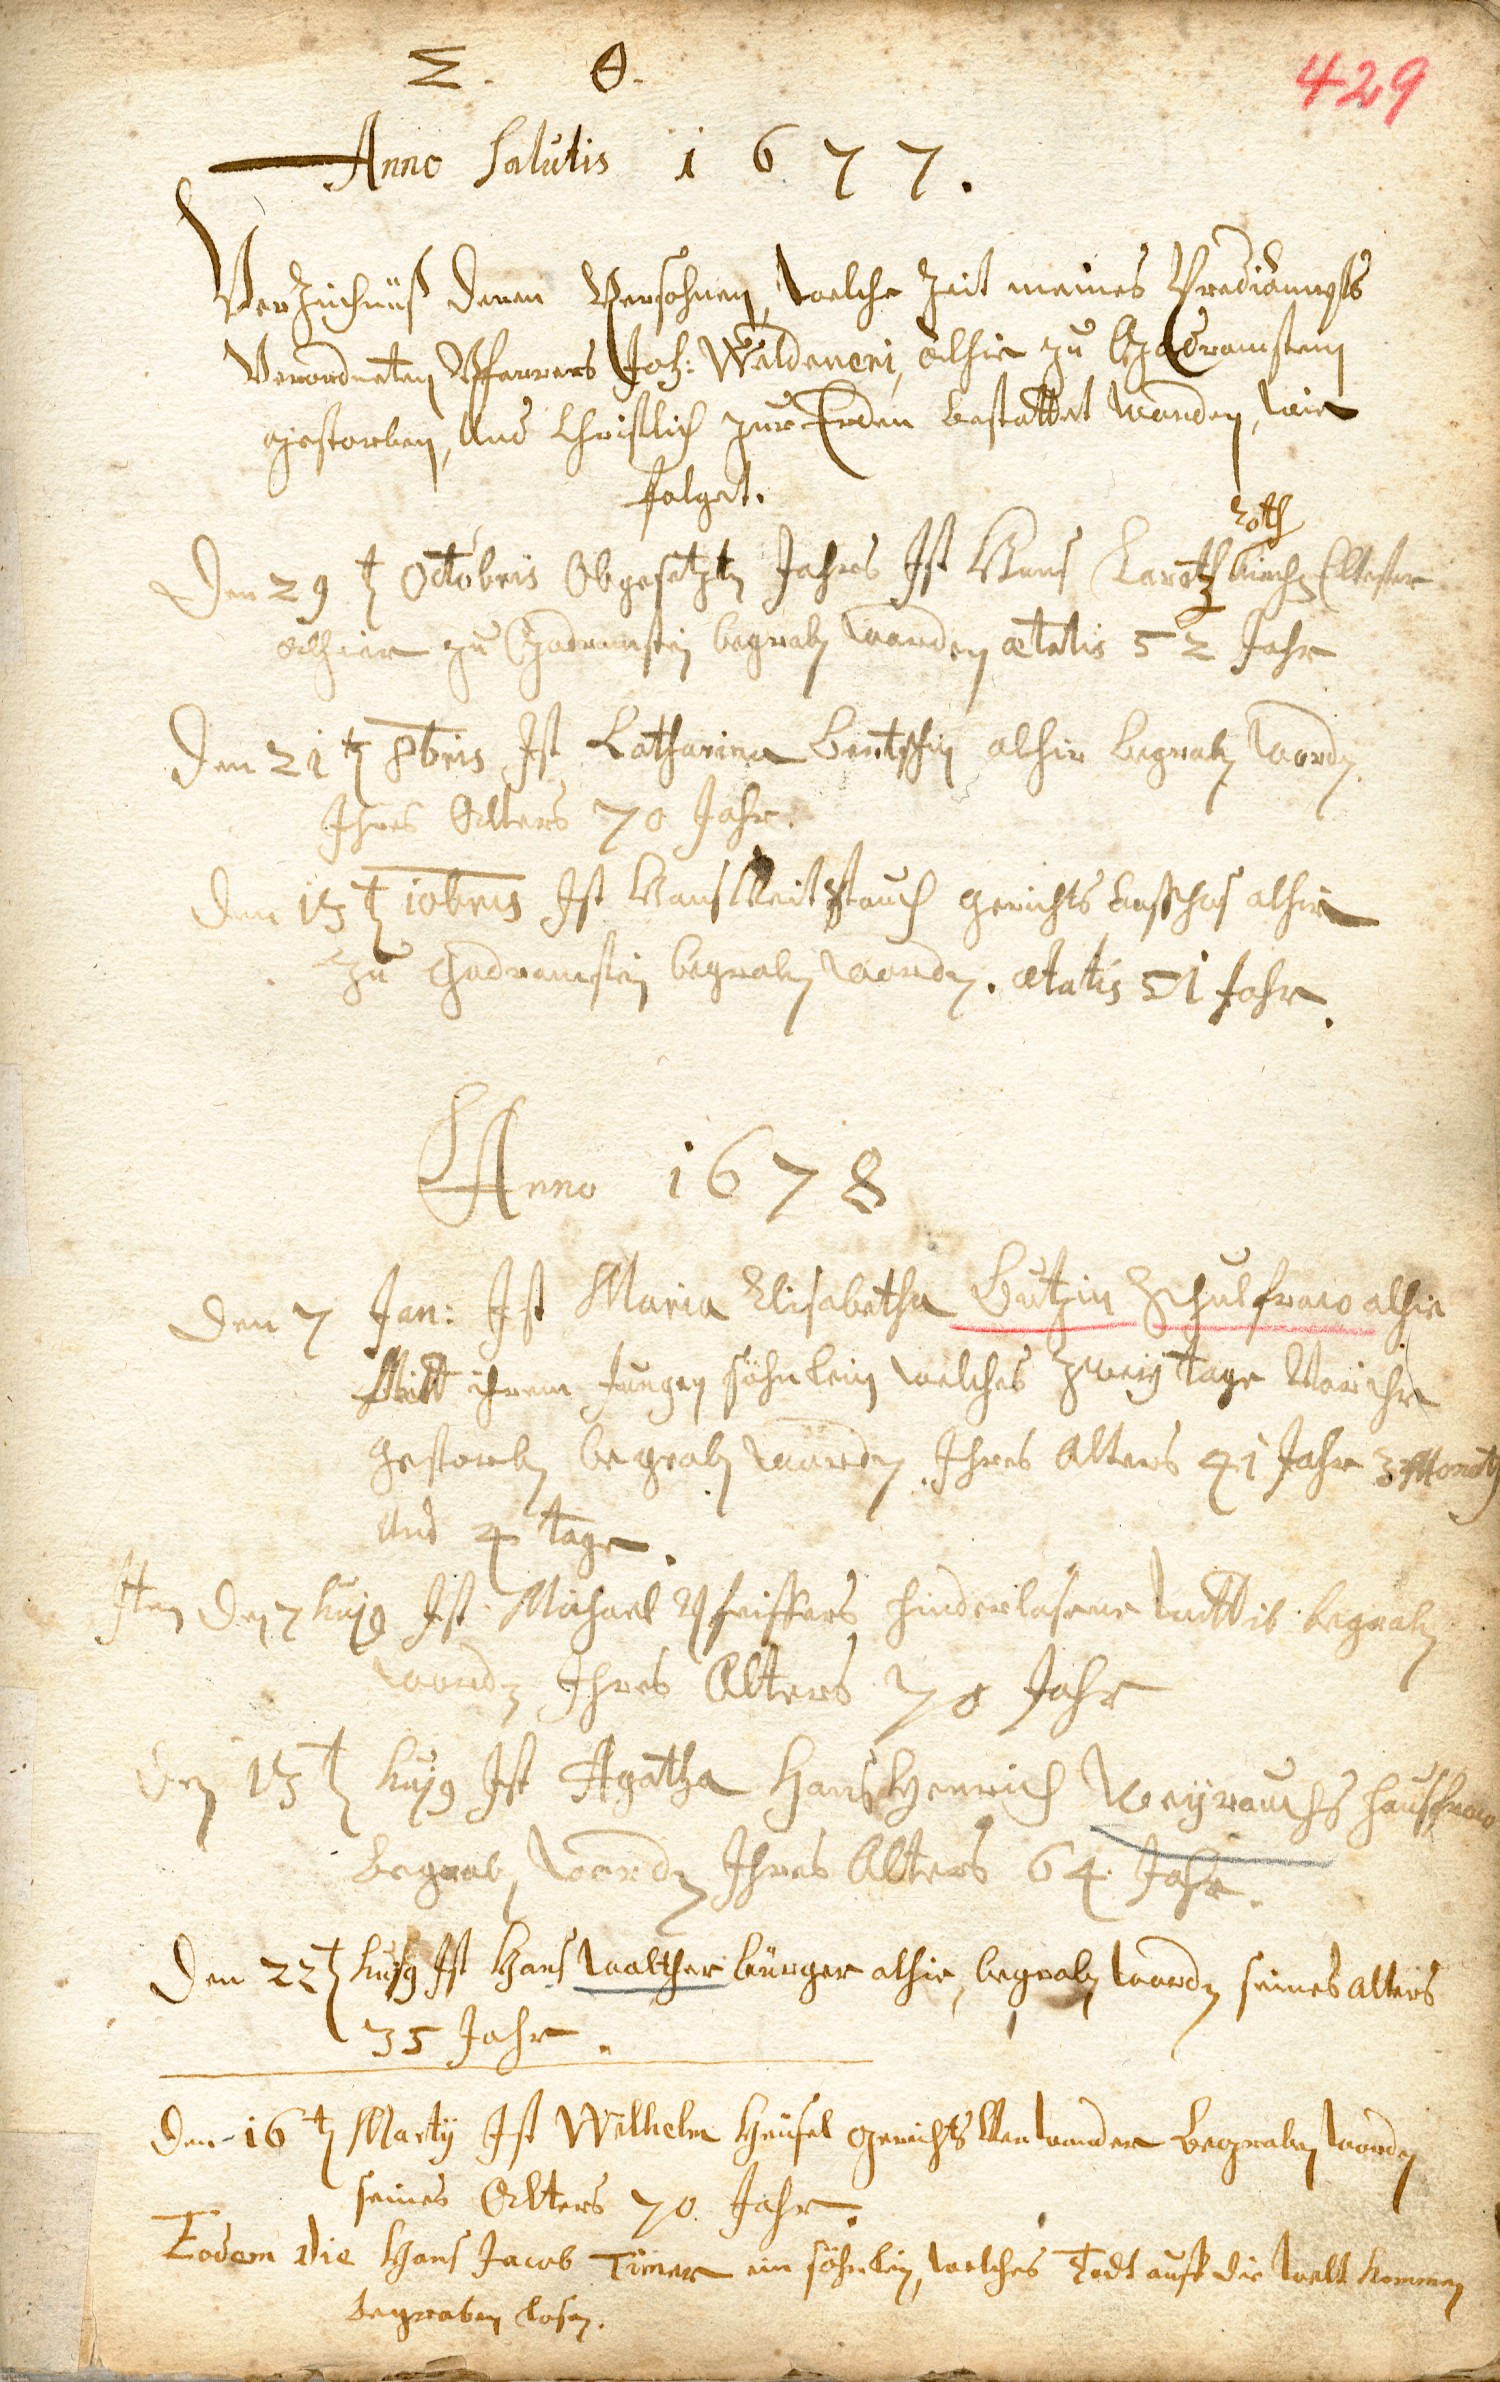 Σ. Θ.
429
Anno Salutis 1677.
Verzeichnüß deren Persohnen, welche Zeit meines Predigampts
Verordneten Pfarrers Joh: Waldeneri, alhie zu Godramstein
gestorben, und Christlich zur Erden bestattet worden, wie
folget.
roth
Den 29t Octobris Obgesetzten Jahres Ist Hans Kirch Eltester
alhier zu Godramstein begraben worden ætatis 52 Jahr
Den 21t 8bris Ist Catharina Bentzin alhie begraben worden
Ihres Alters 70 Jahr.
Den 15t 10bris Ist Hans Veit Stauch gerichts alhie
zu Godramstein begraben worden. ætatis 51 Jahr.
Anno 1678
Den 7 Jan: Ist Maria Elisabetha Butzin Schulfraw alhie
Mitt ihrem Jungen söhnlein welches zweij tage Vor ihr
gestorben begraben worden Ihres Alters 41 Jahr 3 Monat
und 4 tage.
Item den 7 hujus Ist Michael Pfeiffers hinderlasene Wittib begraben
worden Ihres Alters 70 Jahr
Den 15t hujus Ist Agatha Hans Henrich Weijrauchs hausfraw
begraben worden Ihres Alters 64. Jahr.
Den 22t hujus Ist Hans Walther bürger alhie, begraben worden seines Alters
35 Jahr.
Den 16t Martij Ist Wilhelm Heusel gerichts Verwander begraben worden
seines Alters 70 Jahr.
Eodem die Hans Jacob ein söhnlein, welches Todt auff die welt kommen
begraben lasen.